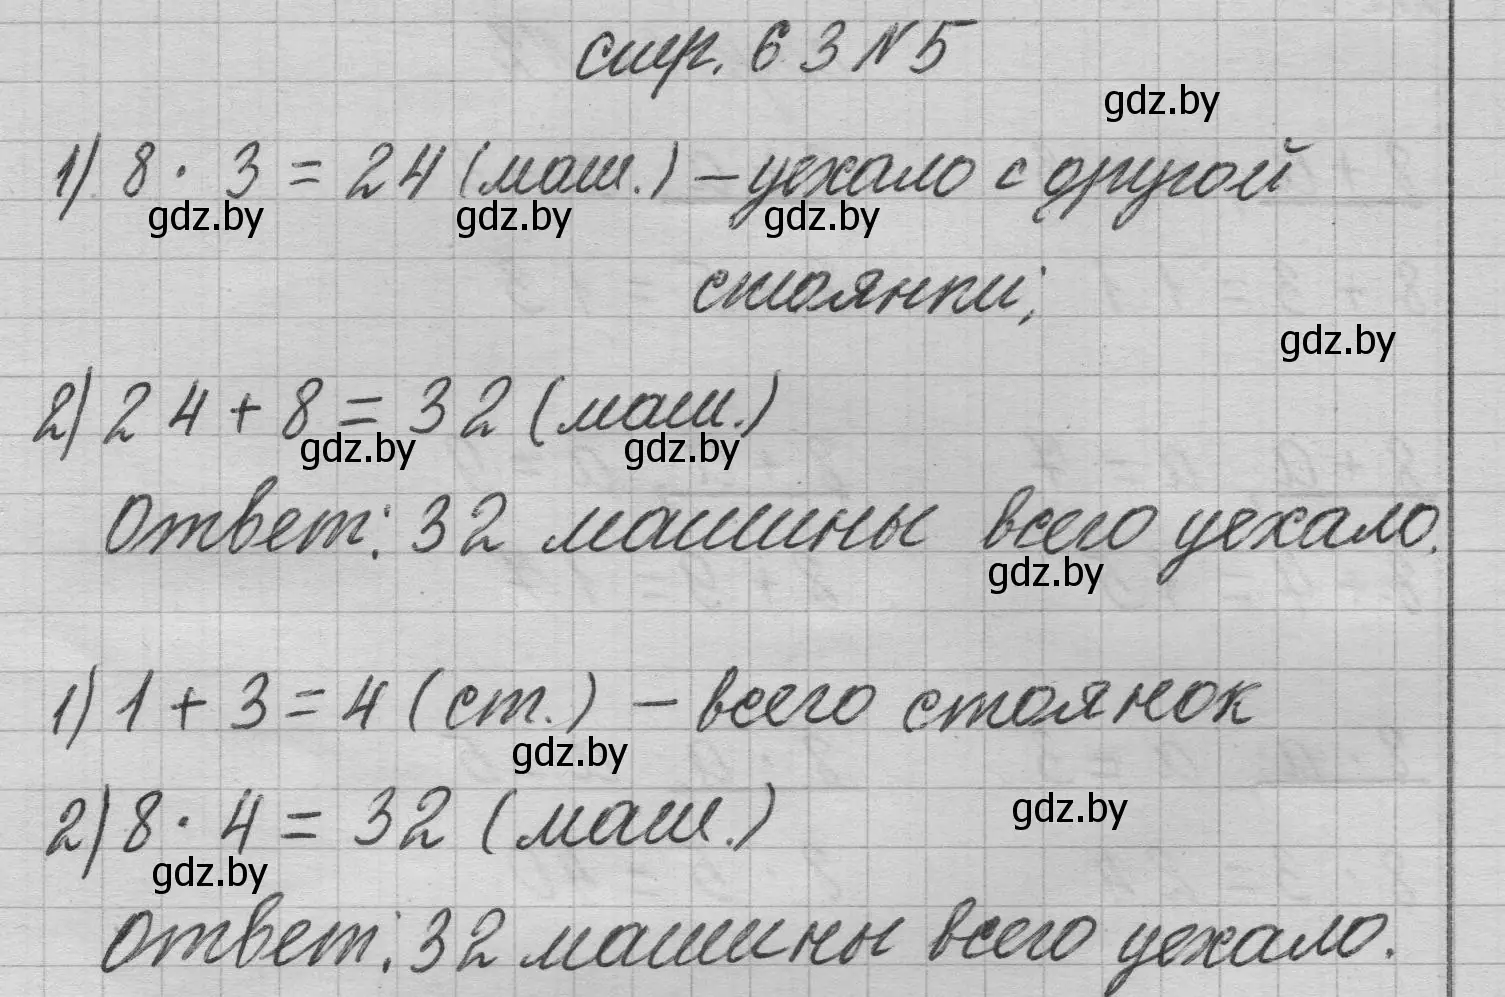 стр. 63 N 5
gdz.by
1) 8 · 3 = 24 (маш.) – уехало с другой
gdz.by gdz.by gdz.by
стоянки;
gdz.by
2) 24 + 8 = 32 (маш.)
gdz.by gdz.by
Ответ: 32 машины всего уехало.
gdz.by
1) 1 + 3 = 4 (ст.) – всего стоянок
gdz.by
2) 8 · 4 = 32 (маш.)
gdz.by
gdz.by
Ответ: 32 машины всего уехало.